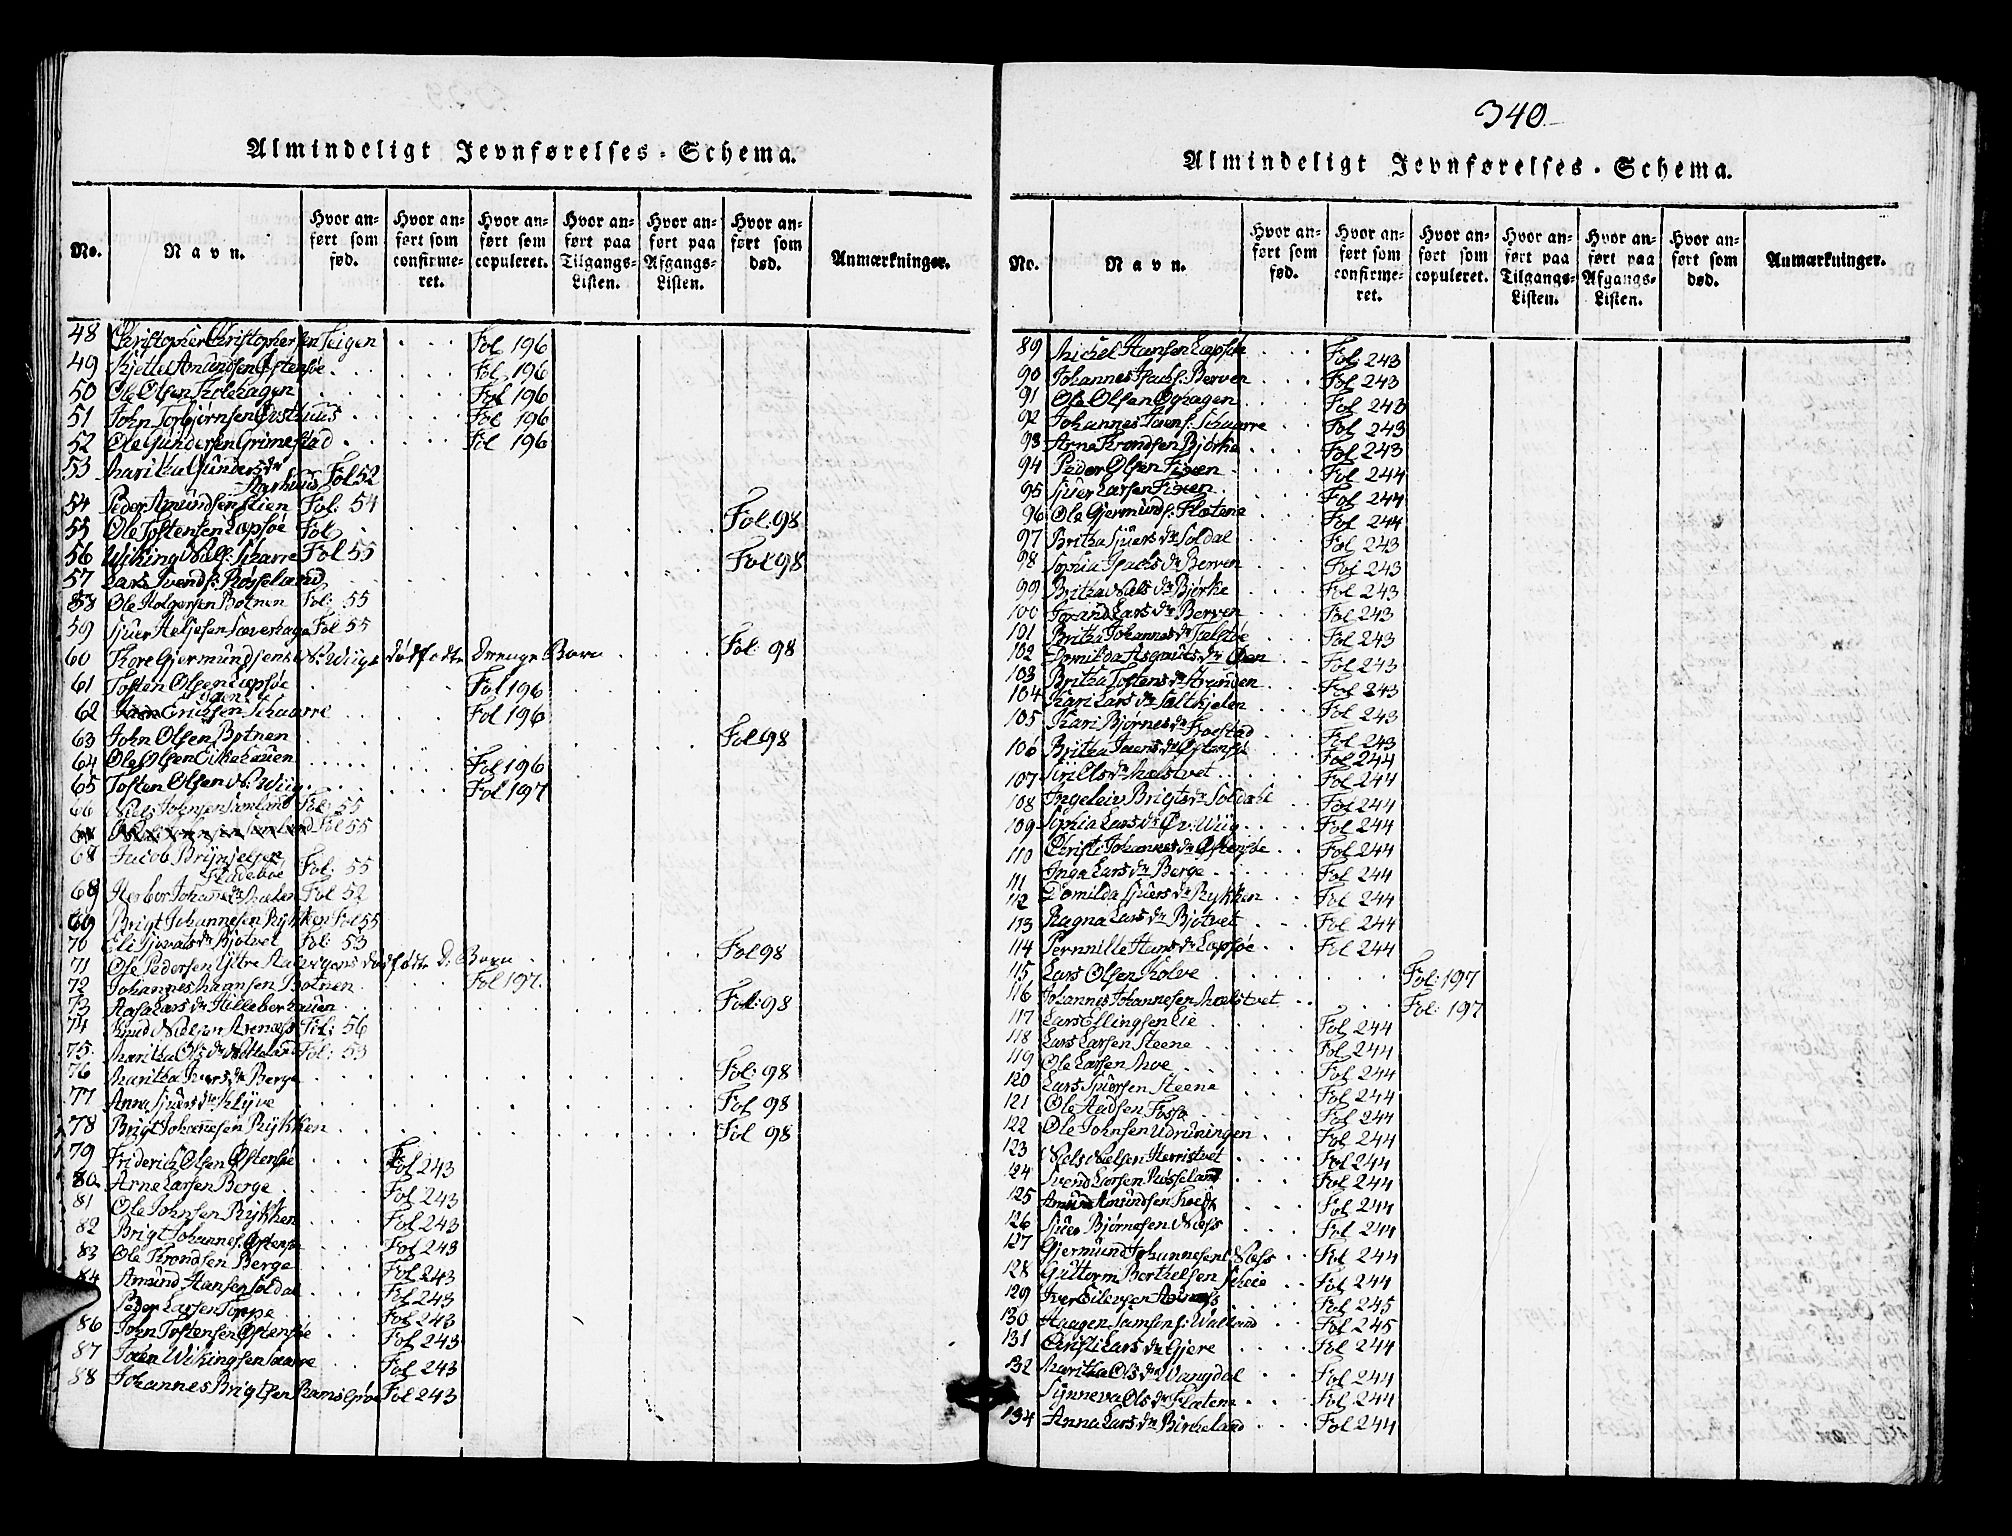 Almindeligt Jevnførelses-Schema.
No. Navn. Hvor anført som fød. Hvor anført som confirmeret. Hvor anført som copuleret. Hvor anført paa Tilgangs-Listen. Hvor anført paa Afgangs-Listen. Hvor anført som død. Anmærkninger.
48 Christopher Christophersen Teigen Fol 196
49 Kjettel Amundsen Østensøe Fol. 196
50 Ole Olsen Kolehagen Fol 196
51 John Torbjørnsen Østhuus Fol 196
52 Ole Gundersen Grimestad Fol 196
53 Maritha Gundersdr
Aarhuus Fol 52
54 Peder Amundsen Fol: 54
55 Ole Tostensen Lepsøe Fol Fol: 98
56 Wiking Skaarre Fol 55
57 Lars Svends: Røseland Fol 98
58 Ole Holgersen Botnen Fol: 55
59 Sjuer Heljesen Fol 55
60 Tore Gjermundsens N: Wiigs dødfødte Drenge Barn Fol: 98
61 Tosten Olsen Lepsøe Fol 196
62 Ericksen Skaarre Fol 196
63 John Olsen Botnen Fol 98
64 Ole Olsen Eikehauen Fol 196
65 Tosten Olsen N: Wiig Fol 197
66 Niels Johnsen Fol: 55
Fol 55
68 Jacob Brynjelsen
Fladebøe Fol: 55
68 Herbor Johannesdr Fol 52
69 Brigt Johannesen Rykken Fol 55
70 Eli Sjovatsdr Bjotvet Fol: 53
71 Ole Pedersen Ytre Aalvigens dødfødte D: Barn Fol 98
72 Johannes Botnen Fol 197.
73 Aasa Larsdr Hilleberhauen Fol: 98
74 Knud Nielsen Axenæs Fol: 56
75. Maritha Olsdr Fol: 53
76 Maritha Iversdr Berge Fol: 98
77 Anna Sjuersdr Klyve Fol 98
78 Brigt Johannesen Rykken Fol 98
79 Friderich Olsen Østensøe Fol 243
80 Arne Larsen Berge Fol 243
81 Ole Johnsen Rykken Fol 243
82 Brigt Johannes: Østensøe Fol 243
83 Ole Trondsen Berge Fol 243
84 Amund Hansen Soldal Fol 243
Peder Larsen Torpe Fol 243
86 John Tostensen Østensøe Fol 243
87 Joen Wikingsen Skaarre Fol 243
88 Johannes Brigtsen Ramsgrøe Fol 243
340
Almindeligt Jevnførelses-Schema.
No. Navn. Hvor anført som fød. Hvor anført som confirmeret. Hvor anført som copuleret. Hvor anført paa Tilgangs-Listen. Hvor anført paa Afgangs-Listen. Hvor anført som død. Anmærkninger.
89 Michel Hansen Lepsøe Fol 243
90 Johannes Isachs: Berven Fol 243
91 Ole Olsen Øyhagen Fol 243
92 Johannes Joens: Skaarre Fol 243
93 Arne Trondsen Bjørke Fol 243
94 Peder Olsen Fixen Fol 244
95 Sjuer Larsen Fixen Fol 244
96 Ole Gjermunds: Flatene Fol 244
97 Britha Sjuersdr Soldal Fol 243
98 Sophia Isachsdr Berven Fol 243
99 Britha Nielsdr Bjørke Fol 243
100 Torand Larsdr Berven Fol 243
101 Britha Johannesdr Fol 243
102 Domilda Asgoutsdr Øen Fol 243
103 Britha Tostensdr Stranden Fol 243
104 Kari Larsdr Saltkjelen Fol 243
105 Kari Bjørnesdr Froestad Fol 243
106 Britha Joensdr Østensøe Fol 244
107 Siri Olsdr Mælstvet Fol 244
108 Ingeleiv Brigtsdr Soldahl Fol 244
109 Sophia Larsdr Øv: Wiig Fol 244
110 Christi Johannesdr Østensøe Fol 244
111 Inga Larsdr Berge Fol 244
112 Domilda Sjuersdr Rykken Fol 244
113 Ragna Larsdr Bjotvet Fol 244
114 Pernnille Hansdr Lepsøe Fol 244
115 Lars Olsen Kolve Fol: 197
116 Johannes Johannesen Mælstvet Fol: 197
117 Lars Ellingsen Lie Fol 244
118 Lars Larsen Steene Fol 244
119 Ole Larsen Moe Fol 244
120 Lars Sjursen Steene Fol 244
121 Ole Aadsen Fosse Fol 244
122 Ole Johnsen Udruningen Fol 244
123 Niels Nielsen Herristvet Fol 244
124 Svend Larsen Røsseland Fol 244
125 Amund Amundsen Fol 244
126 Sjuer Bjørnesen Næss Fol 244
127 Gjermund Johannesen Næss Fol 244
128 Guttorm Berthelsen Skeie Fol 244
129 Iver Eilevsen Axnæss Fol 245
130 Haagen Samsons: Walland Fol 245
131 Christi Larsdr Gjere Fol 244
132 Maritha Olsdr Wangdal Fol 244
Synneva Olsdr Flatene Fol 244
134 Anna Larsdr Birkeland Fol 244